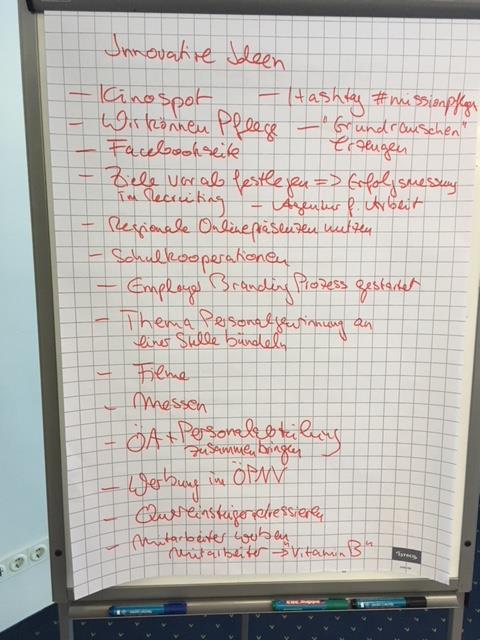 Innovative Ideen
- Kinospot - Hashtag #missionpflege
- Wir können Pflege - "Grundrauschen"
erzeugen
- Facebookseite
- Ziele vorab festlegen => Erfolgsmessung
im Recruiting - Agentur f. Arbeit
- Regionale Onlinepräsenzen nutzen
- Schulkooperationen
- Employer Branding Prozess gestartet
- Thema Personalgewinnung an
einer Stelle bündeln
- Filme
- Messen
- ÖA + Personalabteilung
zusammenbringen
- Werbung im ÖPNV
- Quereinsteiger adressieren
- Mitarbeiter werben
Mitarbeiter → "Vitamin B"